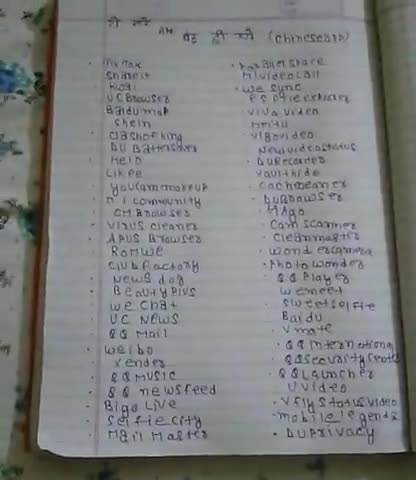 ये सारे
बंद ही करो (Chineseapp)
TikTok
Shareit
Kwai
UCBrowser
Baidu map
Shein
Clashofking
DU Battersaver
Helo
Likee
youcam makeup
Mi community
CM Browser
Virus cleaner
APUS Browser
ROMWE
Club factory
News dog
Beauty plus
We Chat
UC News
QQ Mail
Weibo
Xender
QQ MUSIC
QQ newsfeed
Bigo Live
Selfiecity
Mail Master
Parallelspace
Mivideocall
We sync
ES file explorer
Viva video
Meitu
Vigovideo
Newvideostatus
DU Recorder
Vaulthide
Cachecleaner
DUBrowser
HAgo
Cam scanner
Cleanmaster
wondercamera
Photowonder
QQ Player
we meet
Sweetselfie
Baidu
Vmate
QQ International
QQ Launcher
U Video
V fly status video
mobile legends
DU Privacy